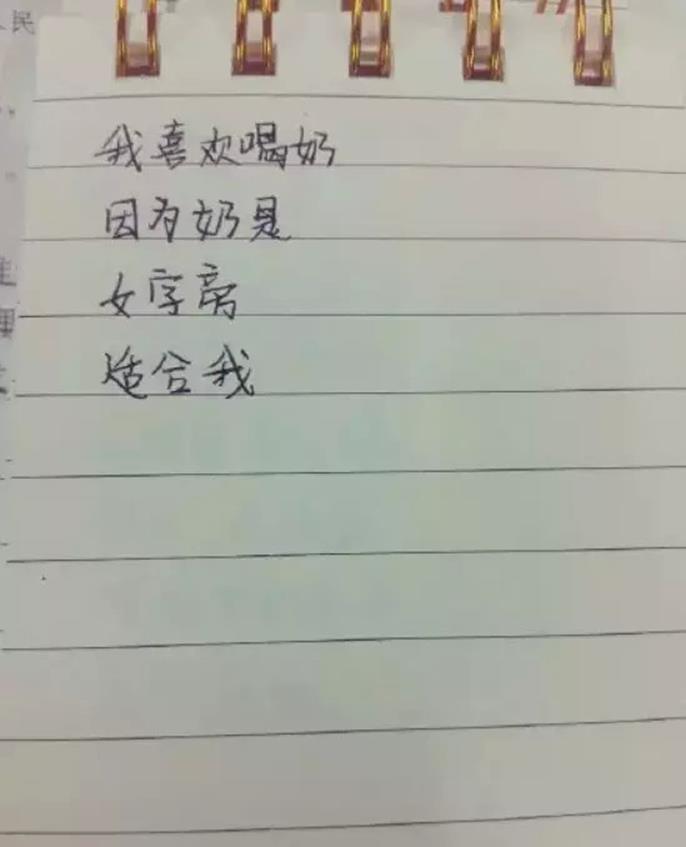 民
我喜欢喝奶
因为奶是
女字旁
适合我
理